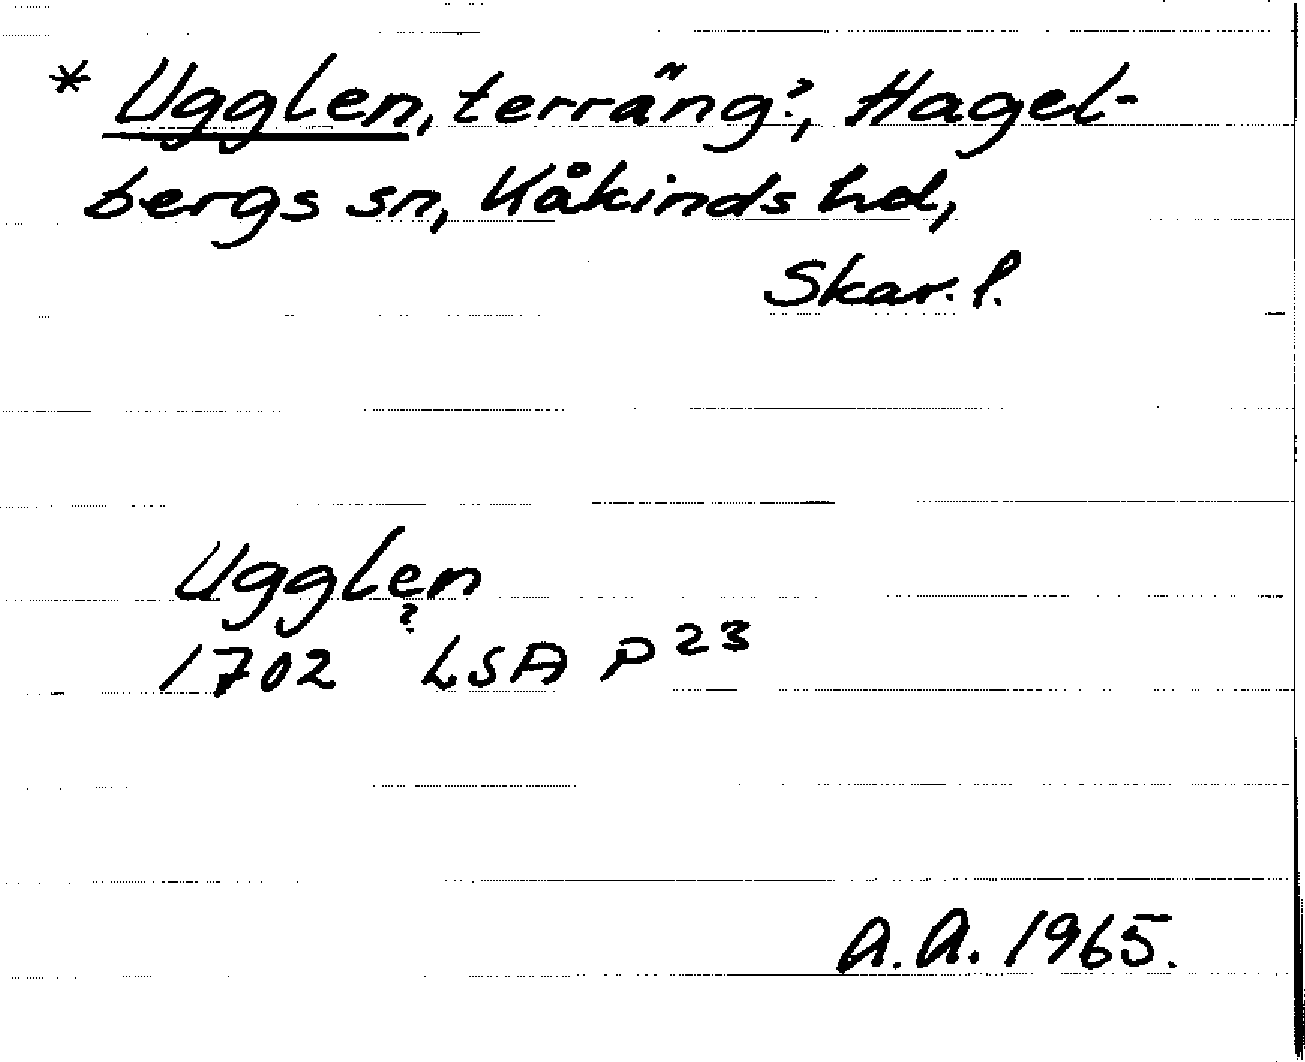 * Ugglen, terräng?, Hagel-
bergs sn, Kåkinds hd,
Skar. l.
Ugglen
?
1702 LSA P 23
A.A. 1965.